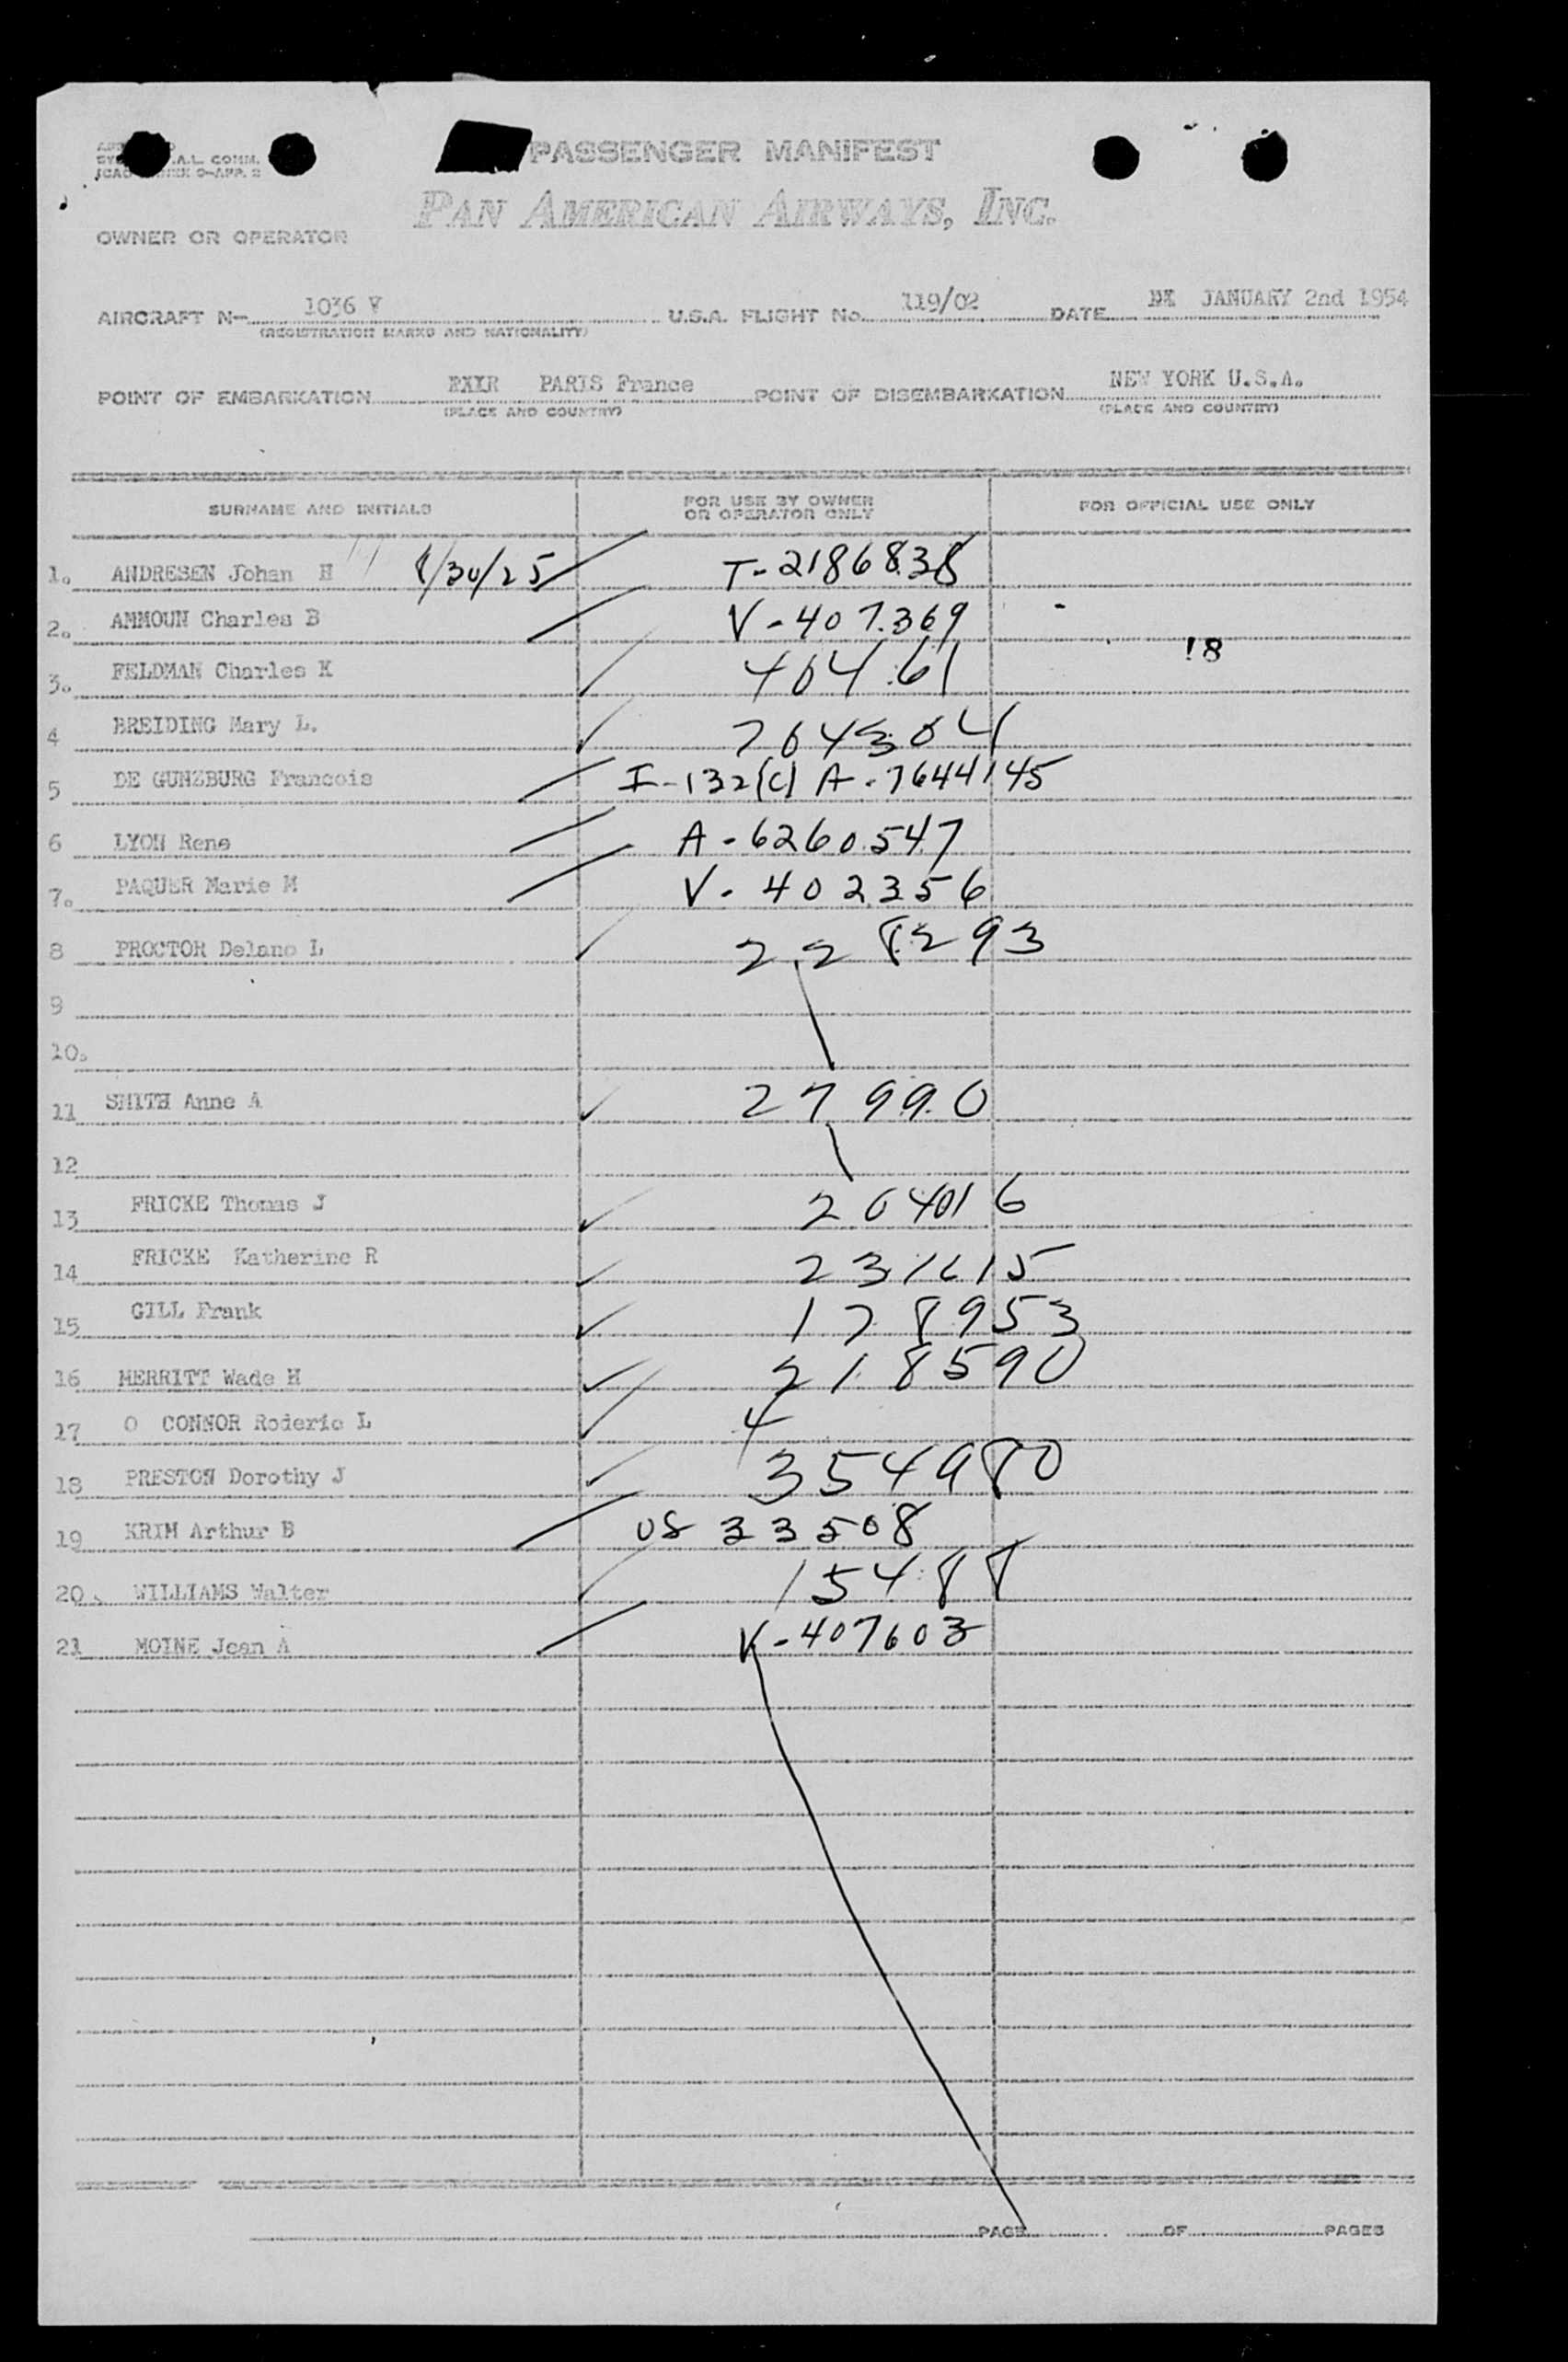 PASSENGER MANIFEST
.A.L. COMM.
PAN AMERICAN AIRWAYS, INC.
OWNER OR OPERATOR
AIRCRAFT N- 1036 V U.S.A. FLIGHT No. 119/02 DATE JANUARY 2nd 1954
(REGISTRATION MARKS AND NATIONALITY)
POINT OF EMBARKATION PARIS France POINT OF DISEMBARKATION NEW YORK U.S.A.
(PLACE AND COUNTRY) (PLACE AND COUNTRY)
SURNAME AND INITIALS FOR USE BY OWNER OR OPERATOR ONLY FOR OFFICIAL USE ONLY
1. ANDRESEN Johan H 8/30/25 T-2186838
2. AMMOUN Charles B V-407369
18
3. FELDMAN Charles K 40461
4 BREIDING Mary L. 704304
5 DE GUNZBURG Francois I-132(c) A-7644145
6 LYON Rene A-6260547
7. PAQUER Marie M V-402356
8 PROCTOR Delano L 228293
9
10.
11 SMITH Anne A 27990
12
13 FRICKE Thomas J 264016
14 FRICKE Katherine R 231615
15 GILL Frank 178953
16 MERRITT Wade H 218590
17 O CONNOR Roderic L 4
18 PRESTON Dorothy J 354980
19 KRIM Arthur B US 33508
20. WILLIAMS Walter 15488
21 MOINE Jean A V-407603
PAGE OF PAGES